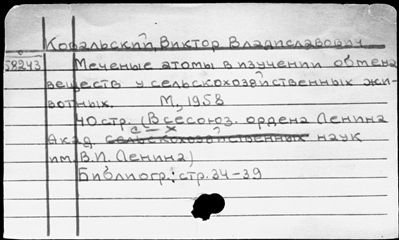 Ковальский, Виктор Владиславович
58243 Меченые атомы в изучении обмена
веществ у сельскохозяйственных жи-
вотных. М., 1958
40 стр. (Всесоюз. ордена Ленина
с-х
Акад сельскохозяйственных наук
им. В.И. Ленина)
Библиогр.: стр. 34-39